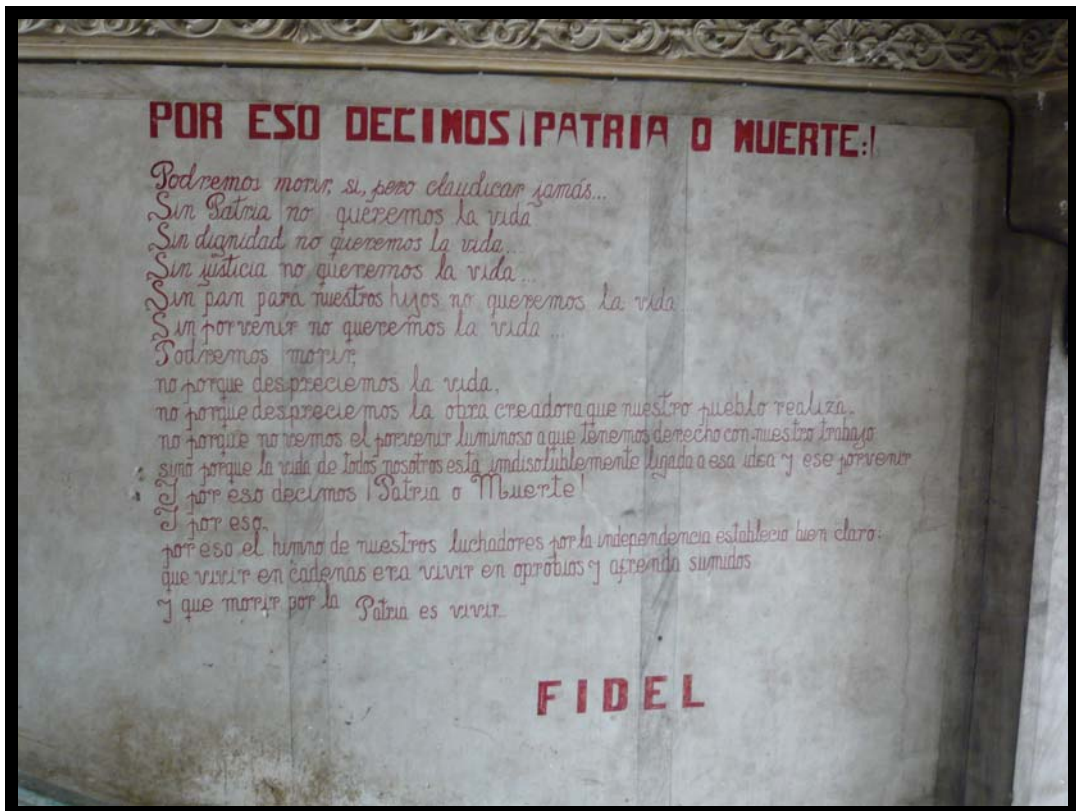 POR ESO DECIMOS ¡PATRIA O MUERTE:!
Podremos morir, si, pero claudicar jamás...
Sin Patria no queremos la vida
Sin dignidad no queremos la vida...
Sin justicia no queremos la vida...
Sin pan para nuestros hijos no queremos la vida
Sin porvenir no queremos la vida...
Podremos morir,
no porque despreciemos la vida,
no porque despreciemos la obra creadora que nuestro pueblo realiza,
no porque no vemos el porvenir luminoso a que tenemos derecho con nuestro trabajo
sino porque la vida de todos nosotros está imdisolublemente ligada a esa idea y ese porvenir
Y por eso decimos ¡Patria o Muerte!
Y por eso,
por eso el himno de nuestros luchadores por la independencia establecio bien claro:
que vivir en cadenas era vivir en oprobios y afrenda sumidos
y que morir por la Patria es vivir...
FIDEL